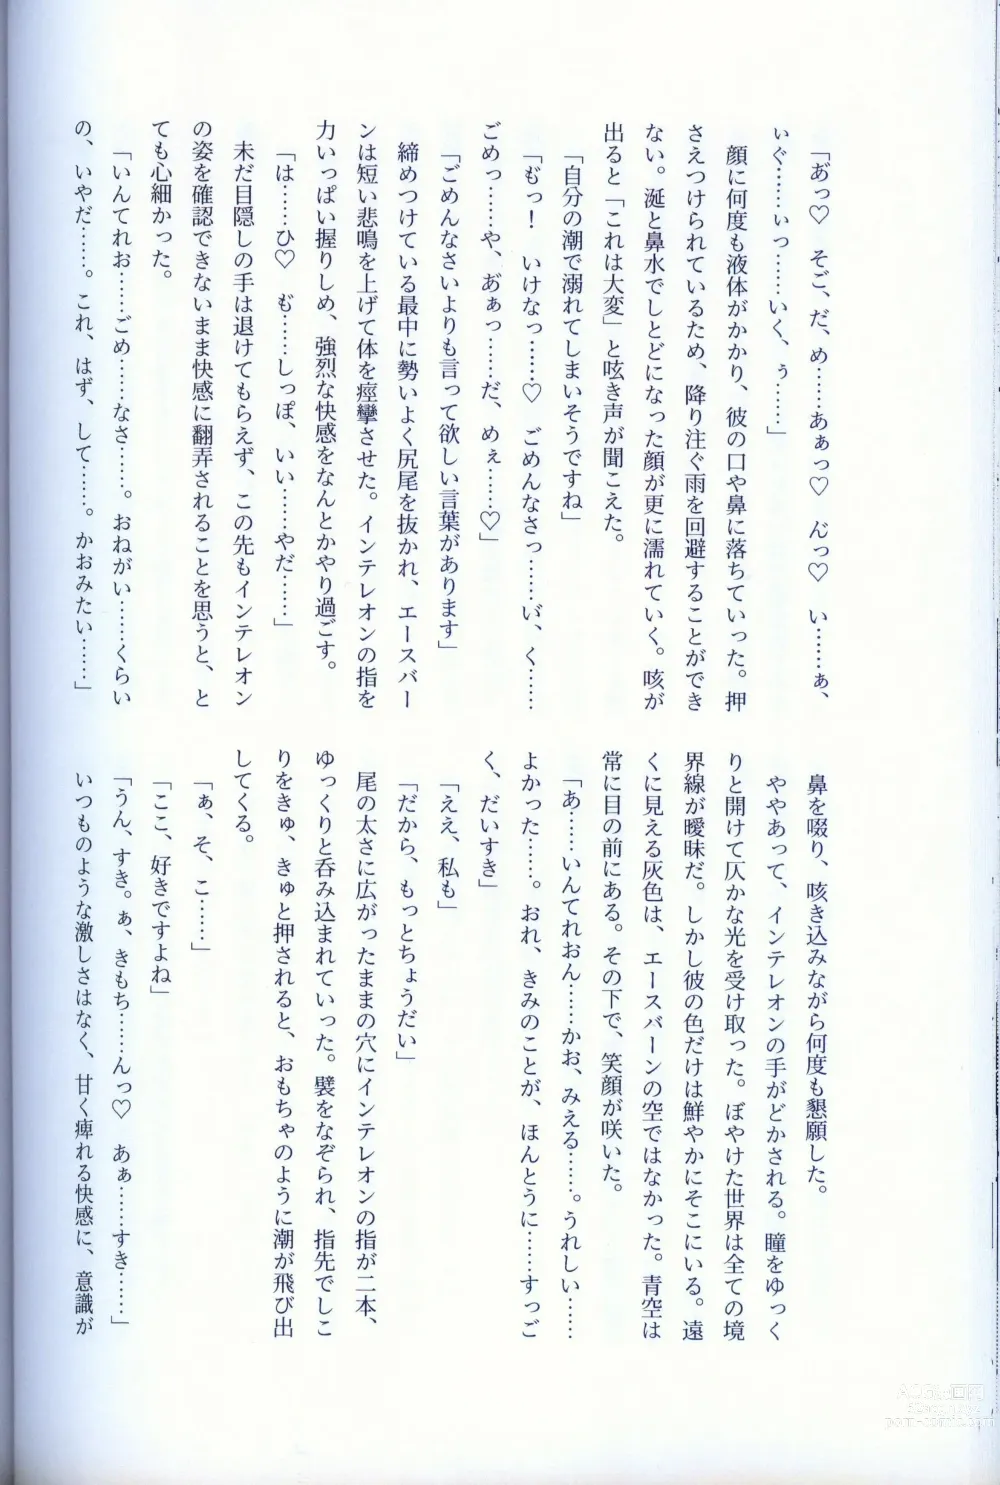 「あ゙っ♡　そご、だ、め……あぁっ♡　ん゙っ♡　い……ぁ、
ぃぐ……ぃっ……いく、ぅ……」
顔に何度も液体がかかり、彼の口や鼻に落ちていった。押
さえつけられているため、降り注ぐ雨を回避することができ
ない。涎と鼻水でしとどになった顔が更に濡れていく。咳が
出ると「これは大変」と呟き声が聞こえた。
「自分の潮で溺れてしまいそうですね」
「も゙っ！　いけなっ……♡　ごめんなさっ……い゙、く……
ごめっ……や、あ゙ぁっ……だ、めぇ……♡」
「ごめんなさいよりも言って欲しい言葉があります」
締めつけている最中に勢いよく尻尾を抜かれ、エースバー
ンは短い悲鳴を上げて体を痙攣させた。インテレオンの指を
力いっぱい握りしめ、強烈な快感をなんとかやり過ごす。
「は……ひ♡　も゙……しっぽ、いい……やだ……」
未だ目隠しの手は退けてもらえず、この先もインテレオン
の姿を確認できないまま快感に翻弄されることを思うと、と
ても心細かった。
「いんてれお……ごめ……なさ……。おねがい……くらい
の、いやだ……。これ、はず、して……。かおみたい……」
鼻を啜り、咳き込みながら何度も懇願した。
ややあって、インテレオンの手がどかされる。瞳をゆっく
りと開けて仄かな光を受け取った。ぼやけた世界は全ての境
界線が曖昧だ。しかし彼の色だけは鮮やかにそこにいる。遠
くに見える灰色は、エースバーンの空ではなかった。青空は
常に目の前にある。その下で、笑顔が咲いた。
「あ……いんてれおん……かお、みえる……。うれしい……
よかった……。おれ、きみのことが、ほんとうに……すっご
く、だいすき」
「ええ、私も」
「だから、もっとちょうだい」
尾の太さに広がったままの穴にインテレオンの指が二本、
ゆっくりと呑み込まれていった。襞をなぞられ、指先でしこ
りをきゅ、きゅと押されると、おもちゃのように潮が飛び出
してくる。
「ぁ、そ、こ……」
「ここ、好きですよね」
「うん、すき。ぁ、きもち……んっ♡　あぁ……すき……」
いつものような激しさはなく、甘く痺れる快感に、意識が